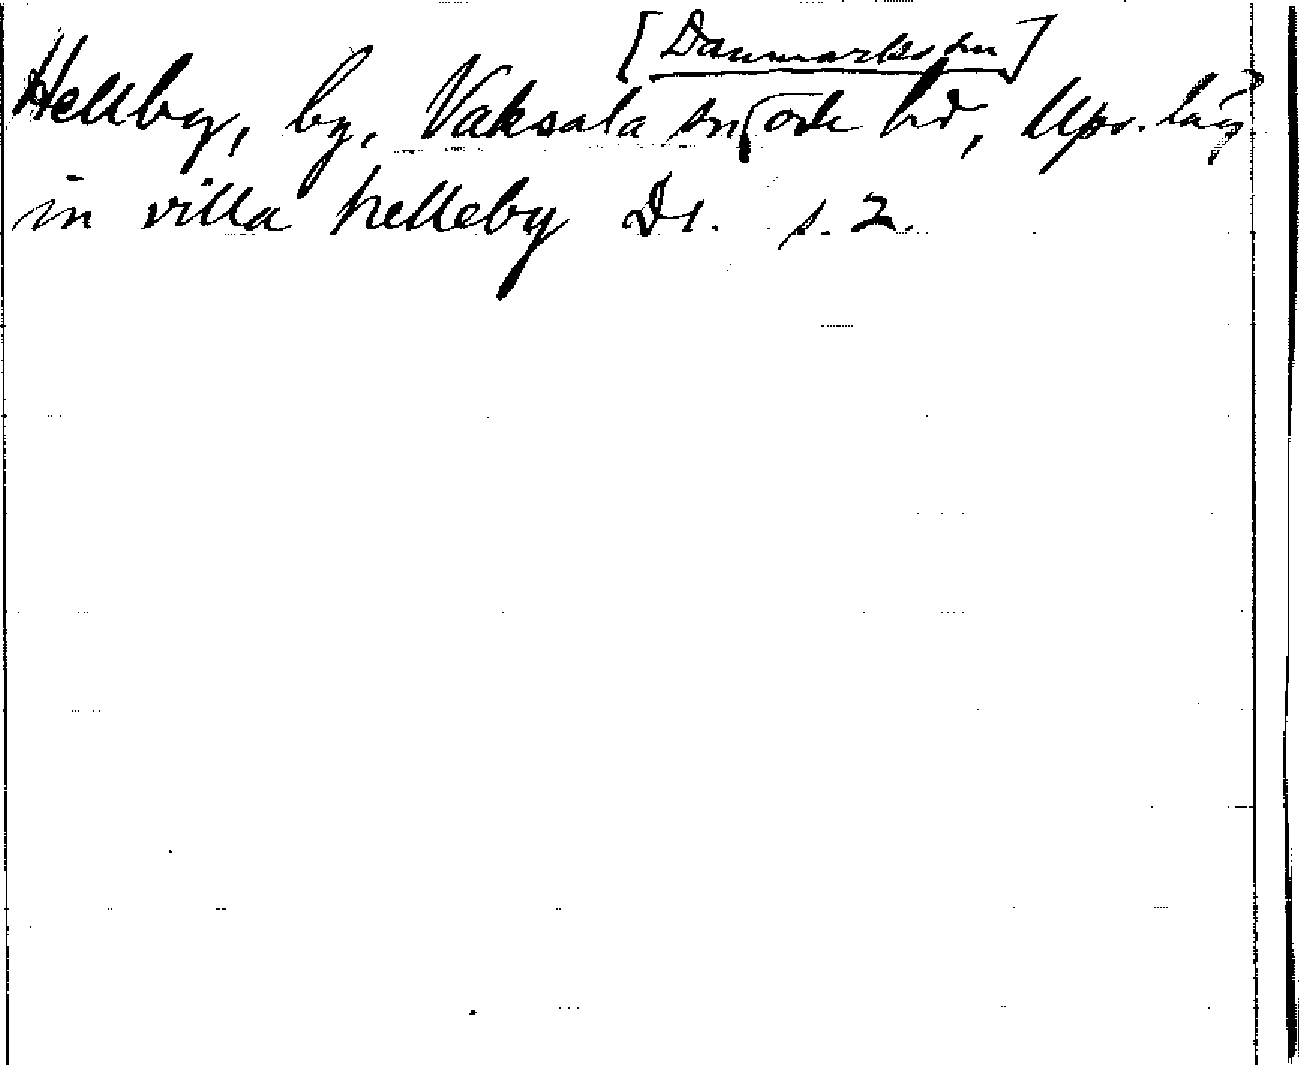 [Danmarks sn]
Hellby, by, Vaksala sn och hd, Upv. län
in villa helleby D1. s. 2.